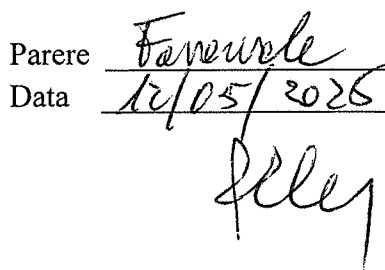 Parere Favorevole
Data 12/05/2025